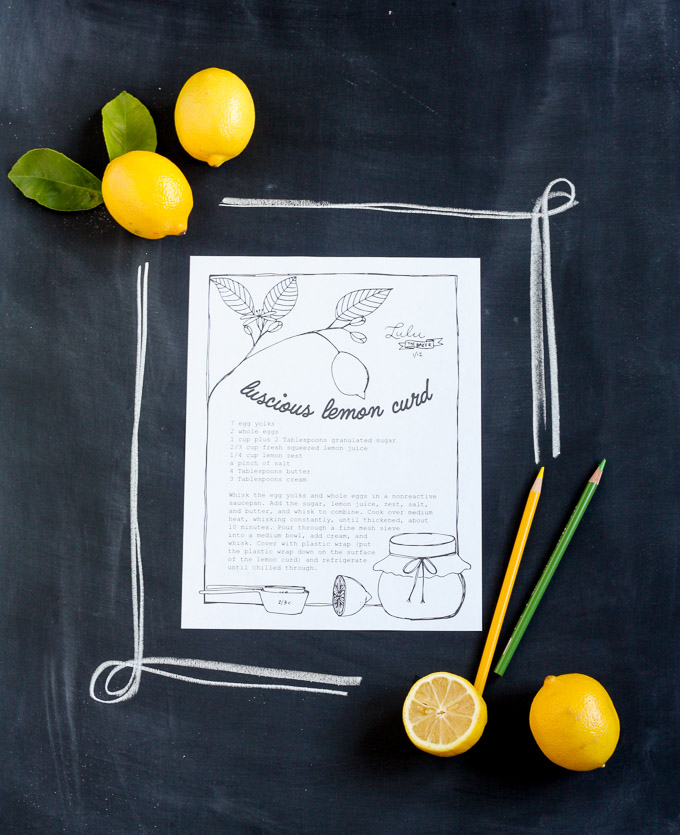 Lulu
THE BAKER
1/12
luscious lemon curd
7 egg yolks
2 whole eggs
1 cup plus 2 Tablespoons granulated sugar
2/3 cup fresh squeezed lemon juice
1/4 cup lemon zest
a pinch of salt
4 Tablespoons butter
3 Tablespoons cream
Whisk the egg yolks and whole eggs in a nonreactive
saucepan. Add the sugar, lemon juice, zest, salt,
and butter, and whisk to combine. Cook over medium
heat, whisking constantly, until thickened, about
10 minutes. Pour through a fine mesh sieve
into a medium bowl, add cream, and
whisk. Cover with plastic wrap (put
the plastic wrap down on the surface
of the lemon curd) and refrigerate
until chilled through.
2/3 c